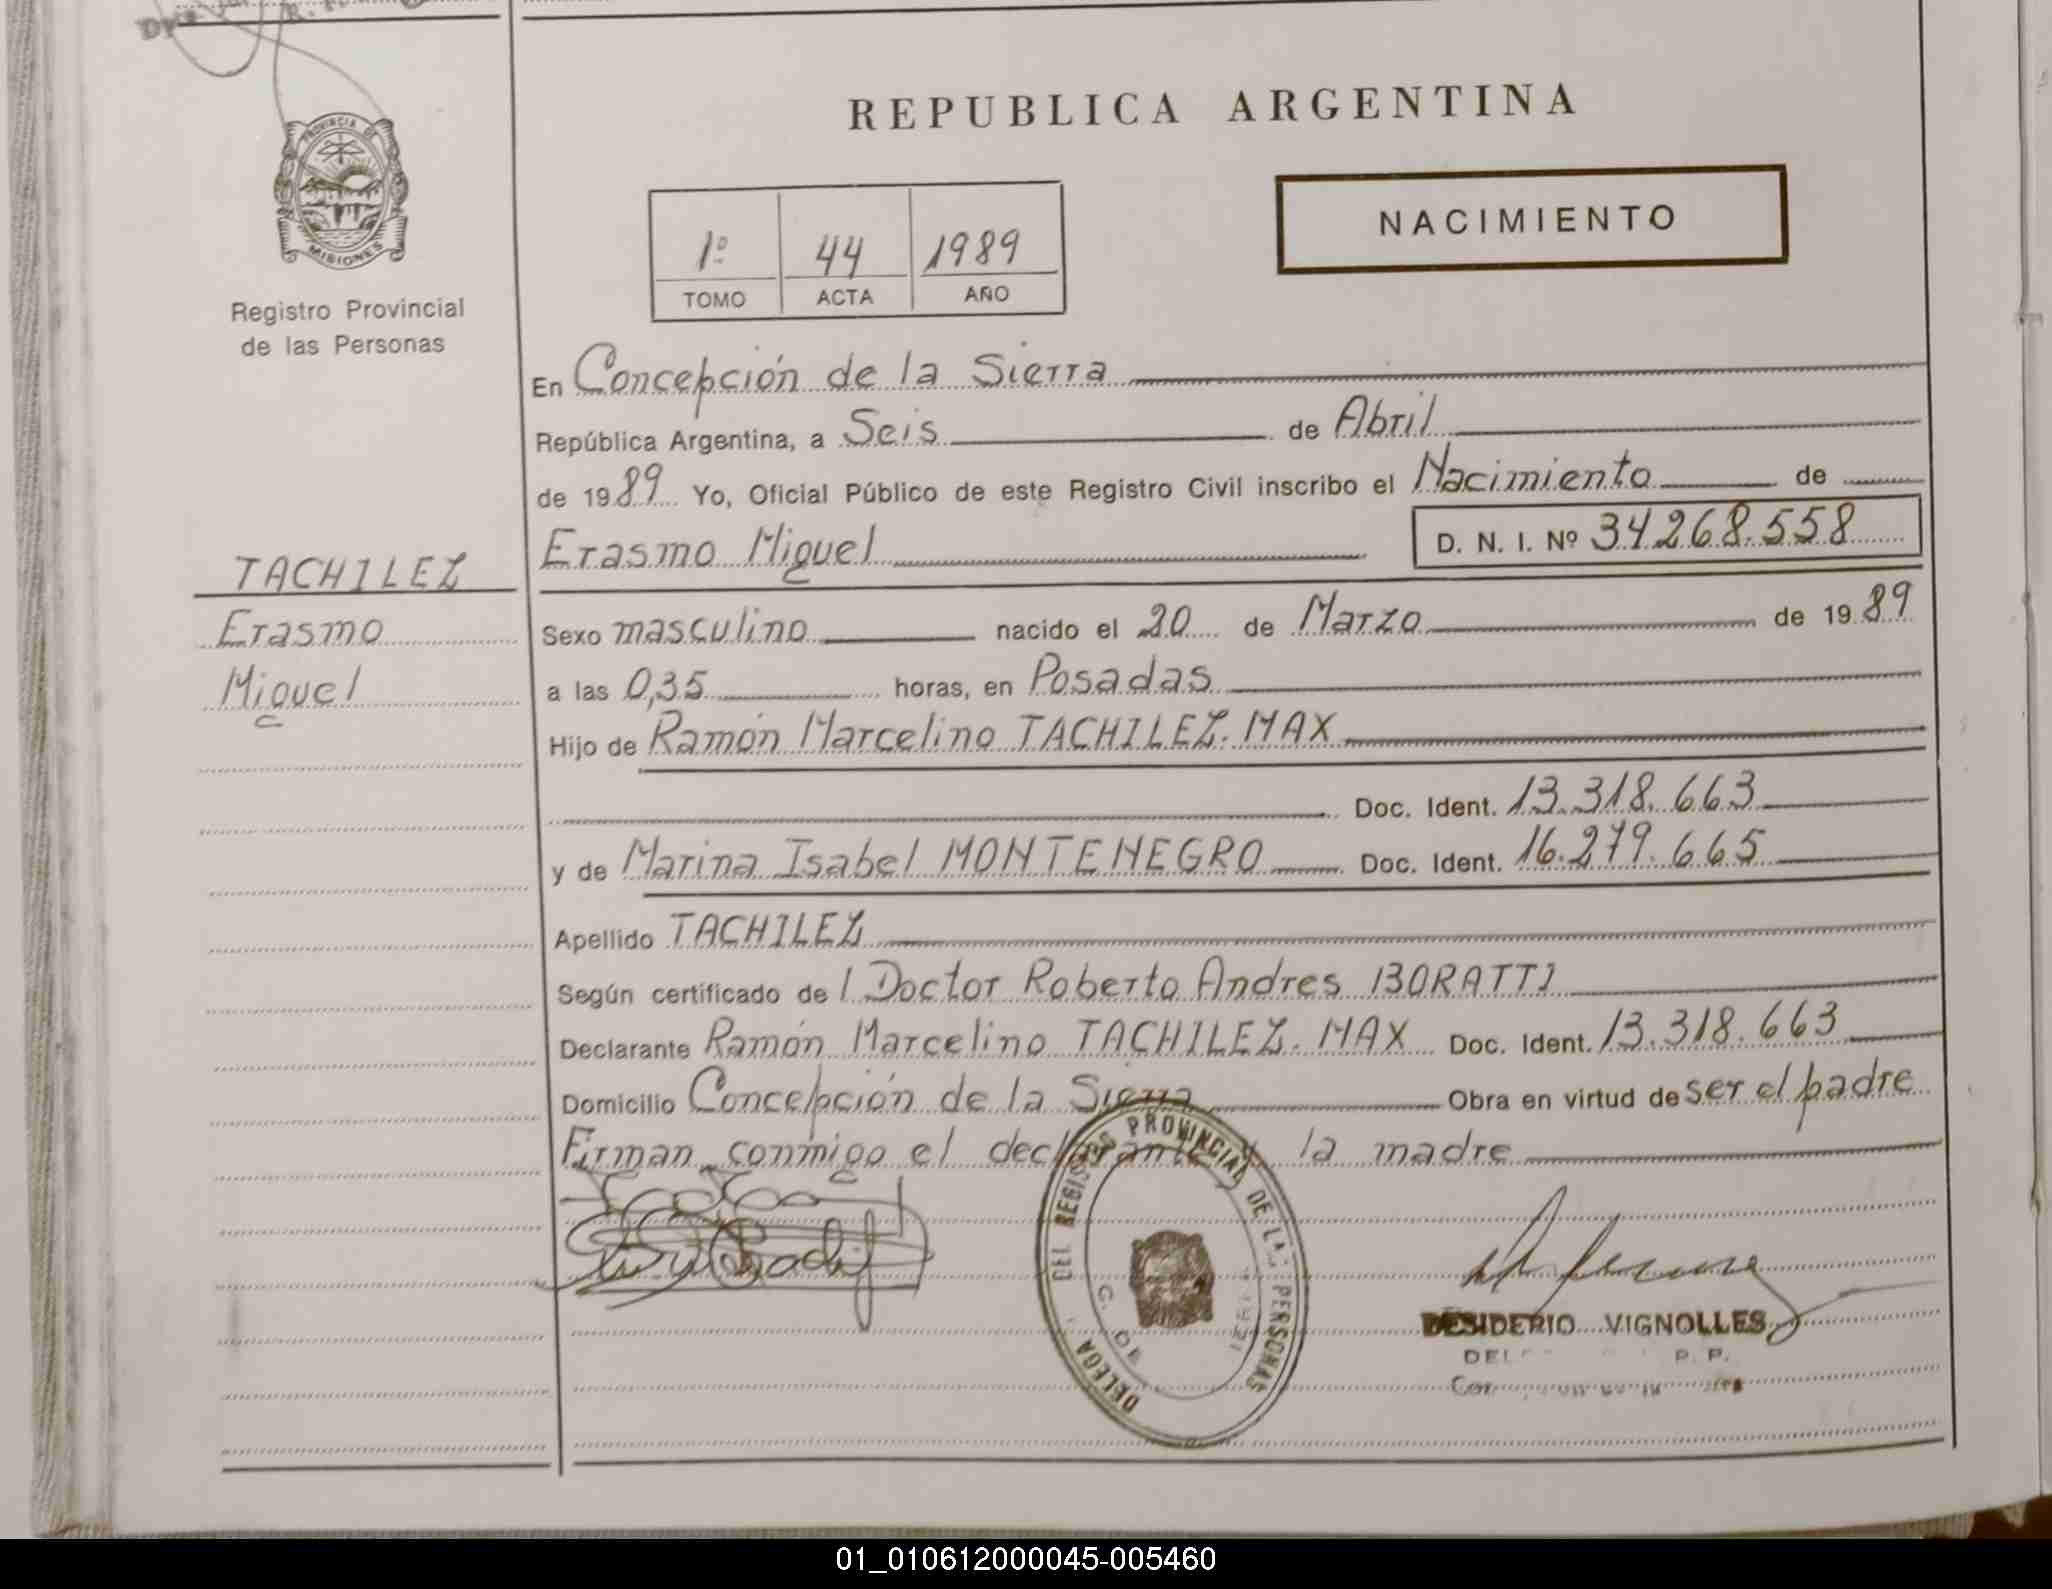 PROVINCIA DE
MISIONES
Registro Provincial
de las Personas
REPUBLICA ARGENTINA
NACIMIENTO
1º 44 1989
TOMO ACTA AÑO
En Concepción de la Sierra
República Argentina, a Seis de Abril
de 1989 Yo, Oficial Público de este Registro Civil inscribo el Nacimiento de
Erasmo Miguel D. N. I. Nº 34.268.558
TACHILEZ
Erasmo
Miguel
Sexo masculino nacido el 20 de Marzo de 1989
a las 0,35 horas, en Posadas
Hijo de Ramón Marcelino TACHILEZ. MAX
Doc. Ident. 13.318.663
y de Marina Isabel MONTENEGRO Doc. Ident. 16.279.665
Apellido TACHILEZ
Según certificado del Doctor Roberto Andres BORATTI
Declarante Ramón Marcelino TACHILEZ. MAX Doc. Ident. 13.318.663
Domicilio Concepción de la Sierra Obra en virtud de ser el padre
Firman conmigo el declarante y la madre
DEL REGISTRO PROVINCIAL DE LAS PERSONAS
DELEGA
C. DE
DESIDERIO VIGNOLLES
P. P.
01_010612000045-005460